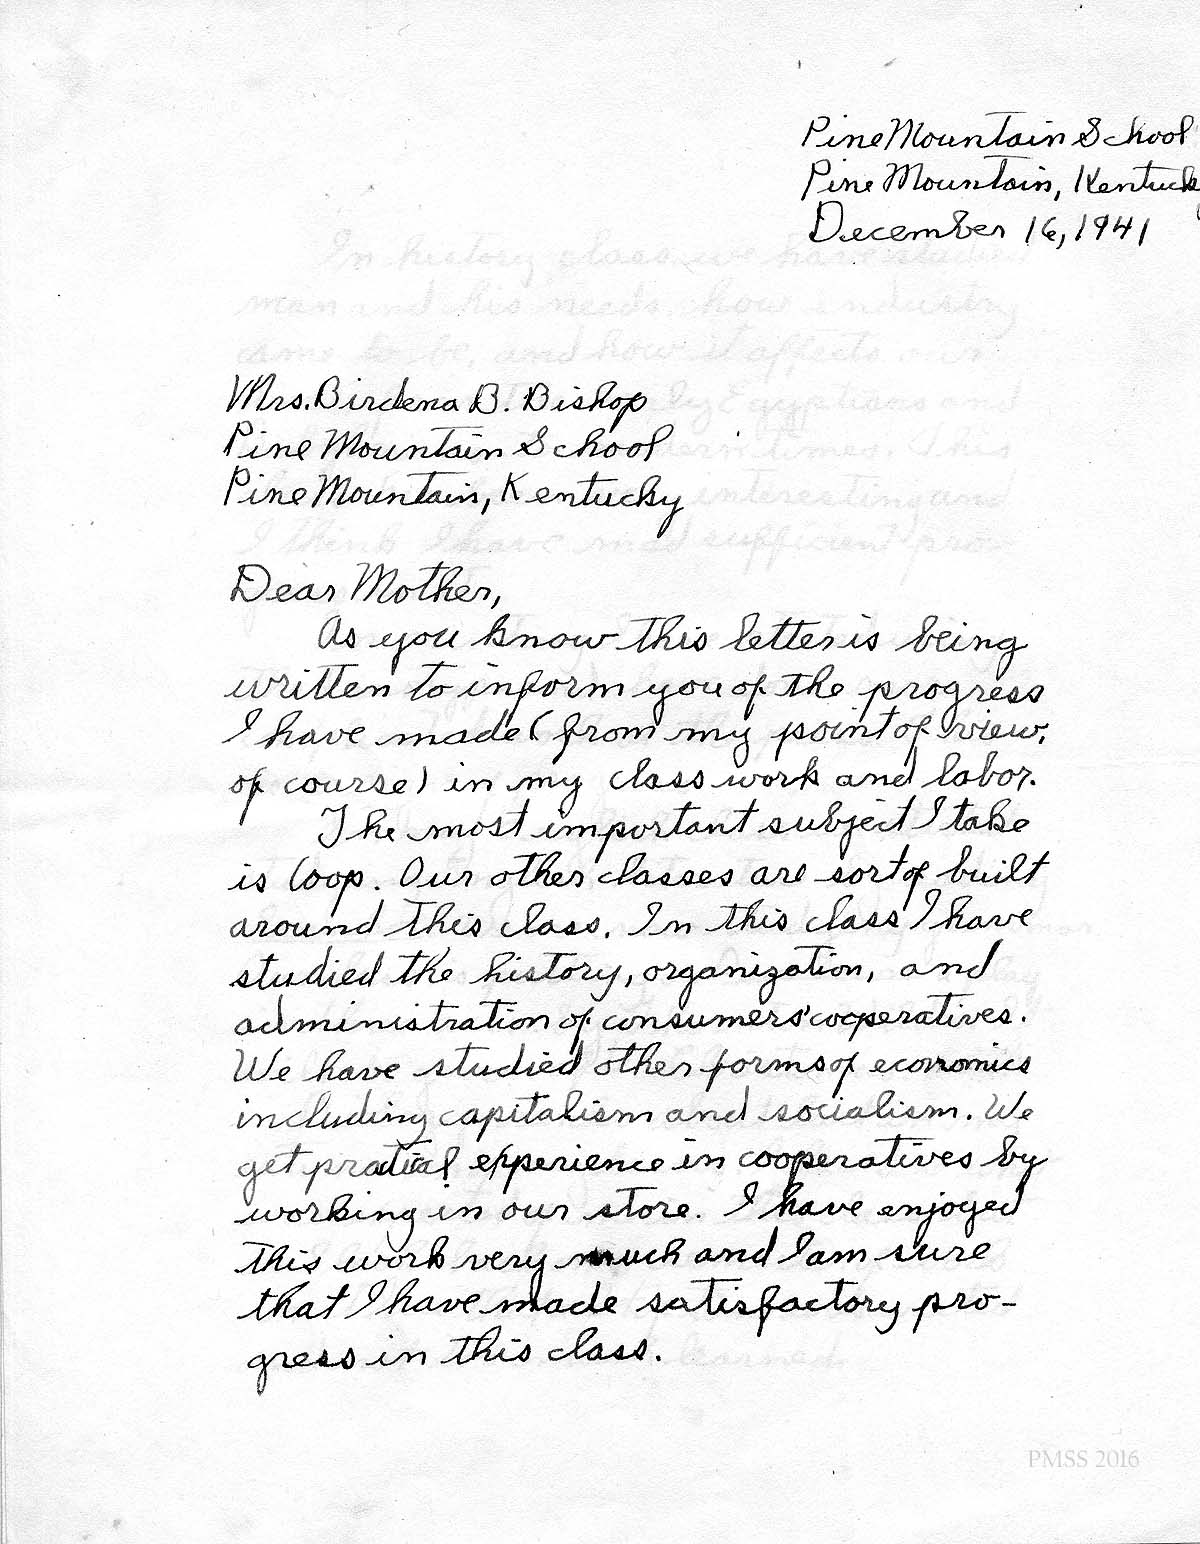 Pine Mountain School
Pine Mountain, Kentucky
December 16, 1941
Mrs. Birdena B. Bishop
Pine Mountain School
Pine Mountain, Kentucky
Dear Mother,
As you know this letter is being
written to inform you of the progress
I have made (from my point of view,
of course) in my class work and labor.
The most important subject I take
is Coop. Our other classes are sort of built
around this class. In this class I have
studied the history, organization, and
administration of consumers' cooperatives.
We have studied other forms of economics
including capitalism and socialism. We
get pratical experience in cooperatives by
working in our store. I have enjoyed
this work very much and I am sure
that I have made satisfactory pro-
gress in this class.
PMSS 2016